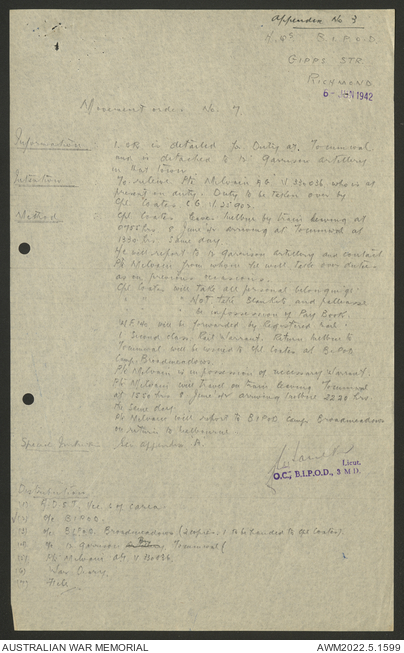 Appendix No 3
H.Qs B.I.P.O.D.
GIPPS STR
RICHMOND
6 - JUN 1942
Movement order No. 7
Information: 1 OR is detailed for Duty at Townsval
and is detached to "R" Garrison Artillery
in that town
Intention: To relieve Pte Milvain A.G. who is at
present on duty. Duty to be taken over by
Cpl Coates C.G. V
Method: Cpl Coates leaves Melbne by train leaving at
0755 hrs 8 June arriving at Townsval at
1330 hrs same day
He will report to R Garrison Artillery and contact
Pte Milvain from whom he will take over duties
as on previous occasions.
Cpl Coates will take all personal belongings:
" " " Not take Blankets and palliasse
be in possession of Pay Book.
will be forwarded by Registered Mail
Second Class Rail Warrant. Return Melbne to
Townsval will be issued to Cpl Coates at B.I.P.O.D.
Camp Broadmeadows
Pte Milvain is in possession of necessary Warrant.
Pte Milvain will travel on train leaving Townsval
at 1550 hrs 8 June arriving Melbne 2228 hrs.
the same day.
Pte Milvain will report to B.I.P.O.D Camp Broadmeadows
on return to Melbourne
Special Instructions: See appendix A.
Lieut.
O.C., B.I.P.O.D., 3 M.D.
Distribution
Vic L of C area
O/C B.I.P.O.D.
O/C B.I.P.O.D. Broadmeadows (2 copies, 1 to be handed to Cpl Coates)
O/C R Garrison Townsval
Pte Milvain A.G. V
War Diary
File
AUSTRALIAN WAR MEMORIAL
AWM2022.5.1599